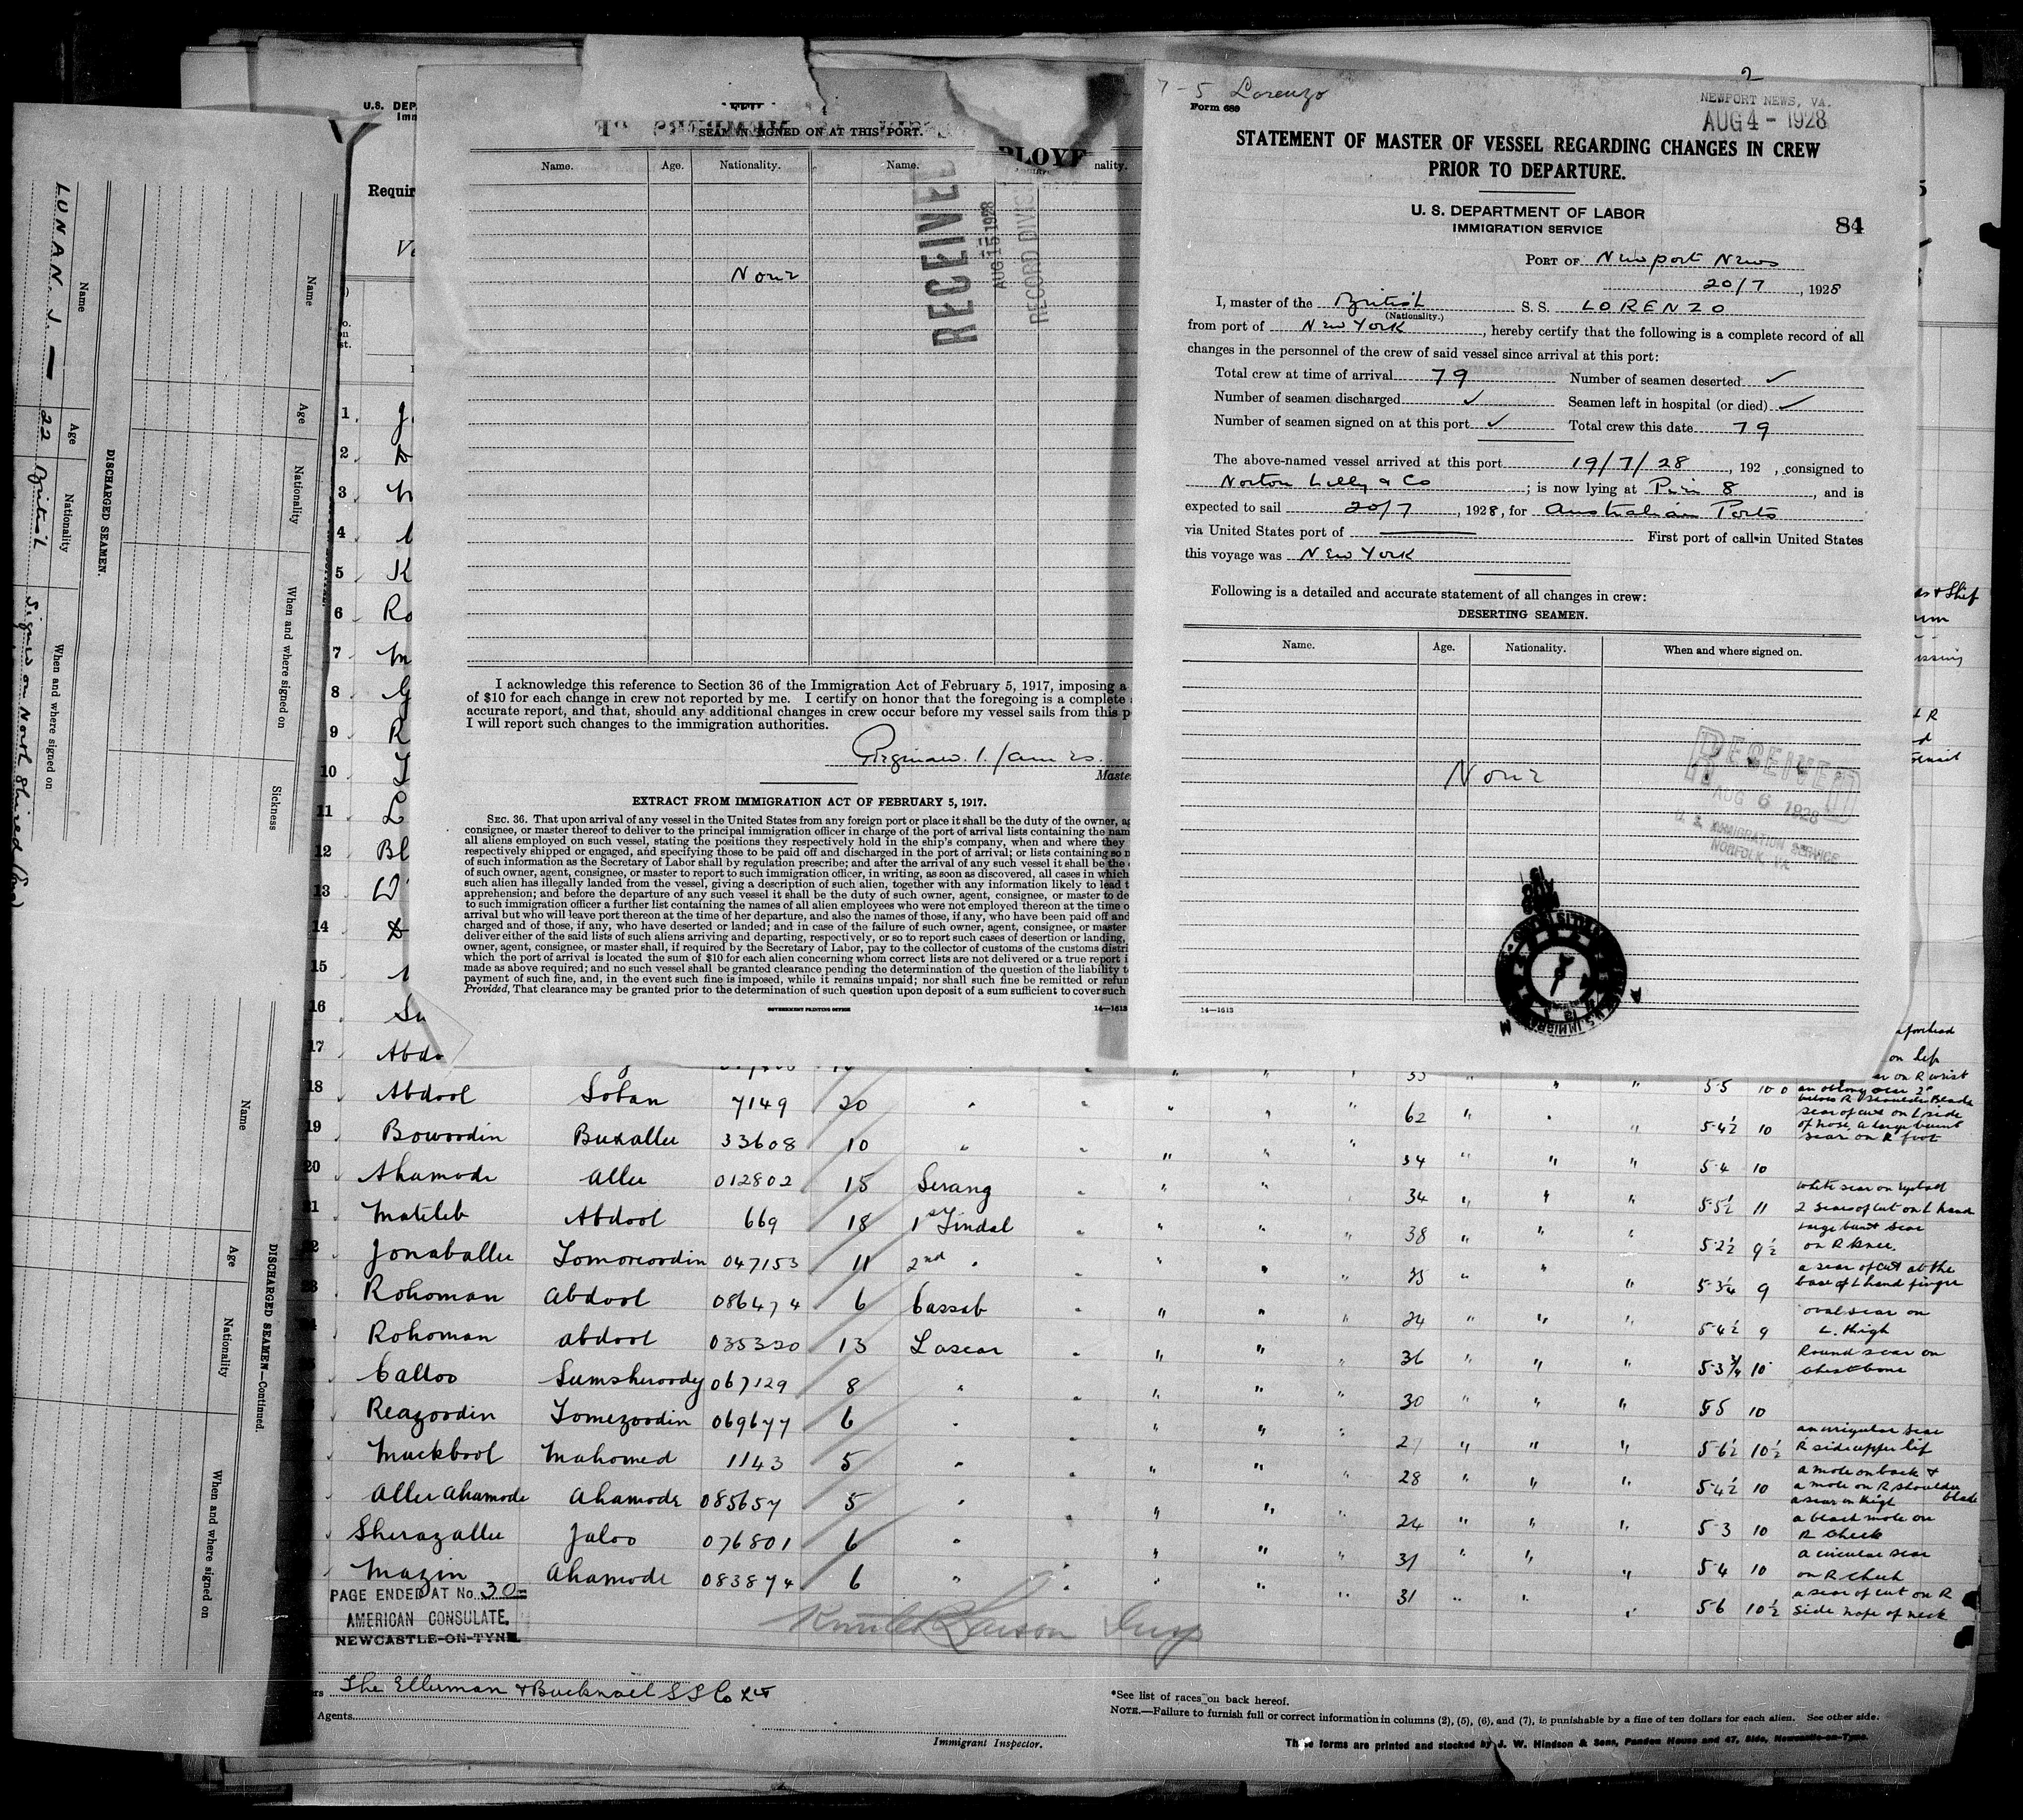 7-5 Lorenzo
2
Form 689
NEWPORT NEWS, VA.
AUG 4 - 1928
STATEMENT OF MASTER OF VESSEL REGARDING CHANGES IN CREW
PRIOR TO DEPARTURE.
U. S. DEPARTMENT OF LABOR
IMMIGRATION SERVICE
84
PORT OF Newport News
20/7, 1928
I, master of the British S. S. LORENZO
(Nationality.)
from port of New York, hereby certify that the following is a complete record of all
changes in the personnel of the crew of said vessel since arrival at this port:
Total crew at time of arrival 79 Number of seamen deserted ✓
Number of seamen discharged ✓ Seamen left in hospital (or died) ✓
Number of seamen signed on at this port ✓ Total crew this date 79
The above-named vessel arrived at this port 19/7/28, 192 , consigned to
Norton Lilly & Co; is now lying at Pier 8, and is
expected to sail 20/7, 1928, for Australian Ports
via United States port of — First port of call in United States
this voyage was New York
Following is a detailed and accurate statement of all changes in crew:
DESERTING SEAMEN.
Name. Age. Nationality. When and where signed on.
None
RECEIVED
AUG 6 1928
U. S. IMMIGRATION SERVICE
NORFOLK, VA
14—1513
U.S. DEP
Imm
Requir
SEAMEN SIGNED ON AT THIS PORT.
PLOYE
Name. Age. Nationality. Name. nality.
RECEIVED
AUG 15 1928
RECORD DIVIS
None
I acknowledge this reference to Section 36 of the Immigration Act of February 5, 1917, imposing a
of $10 for each change in crew not reported by me. I certify on honor that the foregoing is a complete
accurate report, and that, should any additional changes in crew occur before my vessel sails from this p
I will report such changes to the immigration authorities.
Maste
EXTRACT FROM IMMIGRATION ACT OF FEBRUARY 5, 1917.
SEC. 36. That upon arrival of any vessel in the United States from any foreign port or place it shall be the duty of the owner, ag
consignee, or master thereof to deliver to the principal immigration officer in charge of the port of arrival lists containing the nam
all aliens employed on such vessel, stating the positions they respectively hold in the ship's company, when and where they
respectively shipped or engaged, and specifying those to be paid off and discharged in the port of arrival; or lists containing so m
of such information as the Secretary of Labor shall by regulation prescribe; and after the arrival of any such vessel it shall be the
of such owner, agent, consignee, or master to report to such immigration officer, in writing, as soon as discovered, all cases in which
such alien has illegally landed from the vessel, giving a description of such alien, together with any information likely to lead t
apprehension; and before the departure of any such vessel it shall be the duty of such owner, agent, consignee, or master to de
to such immigration officer a further list containing the names of all alien employees who were not employed thereon at the time o
arrival but who will leave port thereon at the time of her departure, and also the names of those, if any, who have been paid off and
charged and of those, if any, who have deserted or landed; and in case of the failure of such owner, agent, consignee, or master
deliver either of the said lists of such aliens arriving and departing, respectively, or so to report such cases of desertion or landing,
owner, agent, consignee, or master shall, if required by the Secretary of Labor, pay to the collector of customs of the customs distri
which the port of arrival is located the sum of $10 for each alien concerning whom correct lists are not delivered or a true report i
made as above required; and no such vessel shall be granted clearance pending the determination of the question of the liability t
payment of such fine, and, in the event such fine is imposed, while it remains unpaid; nor shall such fine be remitted or refun
Provided, That clearance may be granted prior to the determination of such question upon deposit of a sum sufficient to cover such
GOVERNMENT PRINTING OFFICE
14—1513
DISCHARGED SEAMEN.
Name Age Nationality When and where signed on
LUNAN. J. — 22 British Signed on North Shields (Eng)
Name Age Nationality When and where signed on Sickness
DISCHARGED SEAMEN—Continued.
Name Age Nationality When and where signed on
1
2
3
4
5 K
6 Ro
7 M
8 G
9 R
10
11 L
12 Bl
13
14
15
16 Su
17 Abdo
18 Abdool Soban 7149 20 " 62 " 5-5 100
19 Bowoodin Buxallee 33608 10 " 5-4½ 10
20 Ahamode Allee 012802 15 Serang " 34 " 5-4 10
21 Matileb Abdool 669 18 1st Tindal " 34 " 5-5½ 11
22 Jonaballee Tomoroodin 047153 11 2nd " 38 " 5-2½ 9½
23 Rohoman Abdool 086474 6 Cassab " 35 " 5-3¼ 9
Rohoman abdool 035320 13 Lascar " 24 " 5-4½ 9
Calloo Sumsheroody 067129 8 " 36 " 5-3¾ 10
Reazoodin Tomezoodin 069677 6 " 30 " 5-5 10
Muckbool Mahomed 1143 5 " 5-6½ 10½
Allee Ahamode Ahamode 085657 5 " 28 " 5-4½ 10
Sherazallee Jaloo 076801 6 " 24 " 5-3 10
Mazin Ahamode 083874 6 " 31 " 5-4 10
31 " 5-6 10½
forehead
on lip
on R wrist
below R Shoulder Blade
scar of cut on L side
of nose, a large burnt
scar on R foot
white scar on eyeball
2 scars of cut on L hand
large burnt scar
on R knee.
a scar of cut at the
base of L hand finger
oval scar on
L. thigh
Round scar on
chestbone
an irregular scar
R side upper lip
a mole on back +
a mole on R shoulder blade
a scar on thigh
a black mole on
R cheek
a circular scar
on R cheek
a scar of cut on R
side nape of neck
PAGE ENDED AT No. 30
AMERICAN CONSULATE.
NEWCASTLE-ON-TYNE.
The Ellerman & Bucknall S S Co Ltd
Agents
Immigrant Inspector.
*See list of races on back hereof.
NOTE.—Failure to furnish full or correct information in columns (2), (5), (6), and (7), is punishable by a fine of ten dollars for each alien. See other side.
These forms are printed and stocked by J. W. Hindson & Sons, Pandon House and 47, Side, Newcastle-on-Tyne.